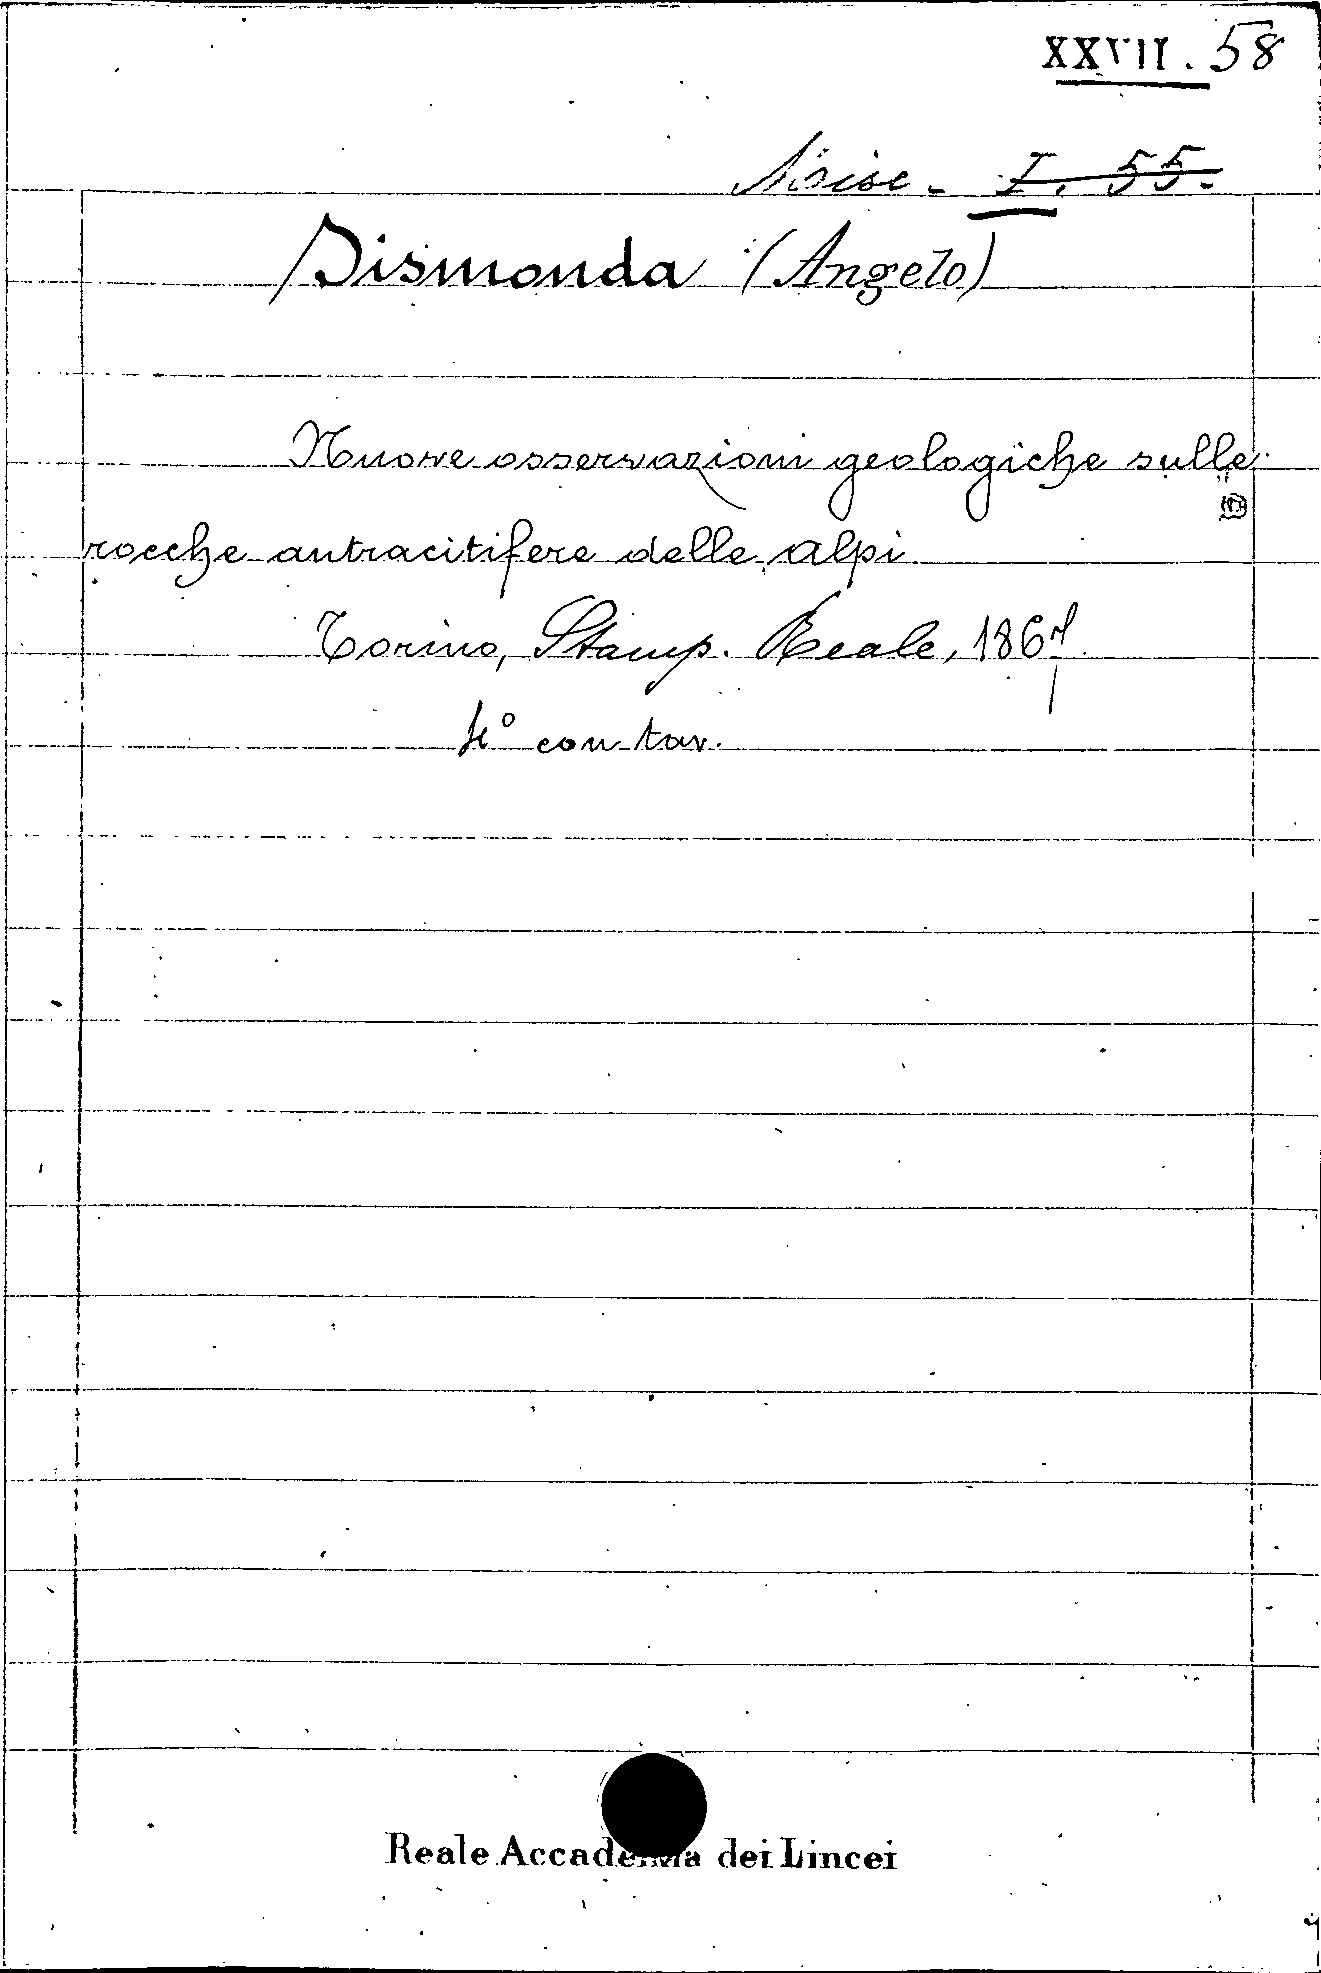 XXVII. 58
Misc. I. 55.
Sismonda (Angelo)
Nuove osservazioni geologiche sulle
rocche antracitifere delle alpi
Torino, Stamp. Reale, 1867
4° con tav.
Reale Accademia dei Lincei